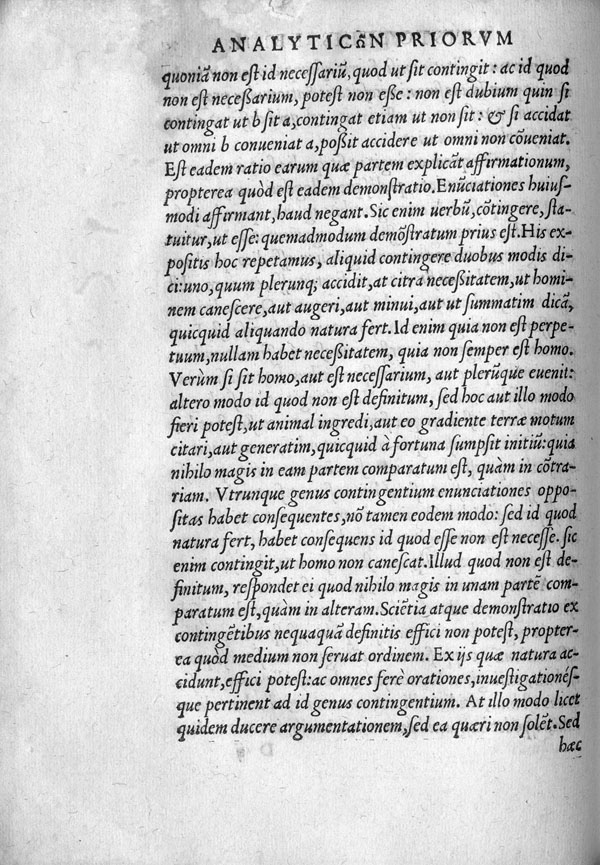 ANALYTICῶN PRIORVM
quoniã non est id necessariũ, quod ut sit contingit: ac id quod
non est necessarium, potest non esse: non est dubium quin si
contingat ut b sit a, contingat etiam ut non sit: & si accidat
ut omni b conueniat a, possit accidere ut omni non cõueniat.
Est eadem ratio earum quæ partem explicãt affirmationum,
propterea quòd est eadem demonstratio. Enũciationes huius-
modi affirmant, haud negant. Sic enim uerbũ, cõtingere, sta-
tuitur, ut esse: quemadmodum demõstratum prius est. His ex-
positis hoc repetamus, aliquid contingere duobus modis di-
ci: uno, quum plerunq; accidit, at citra necessitatem, ut homi-
nem canescere, aut augeri, aut minui, aut ut summatim dicã,
quicquid aliquando natura fert. Id enim quia non est perpe-
tuum, nullam habet necessitatem, quia non semper est homo.
Verùm si sit homo, aut est necessarium, aut plerũque euenit:
altero modo id quod non est definitum, sed hoc aut illo modo
fieri potest, ut animal ingredi, aut eo gradiente terræ motum
citari, aut generatim, quicquid à fortuna sumpsit initiũ: quia
nihilo magis in eam partem comparatum est, quàm in cõtra-
riam. Vtrunque genus contingentium enunciationes oppo-
sitas habet consequentes, nõ tamen eodem modo: sed id quod
natura fert, habet consequens id quod esse non est necesse. sic
enim contingit, ut homo non canescat. Illud quod non est de-
finitum, respondet ei quod nihilo magis in unam partẽ com-
paratum est, quàm in alteram. Sciẽtia atque demonstratio ex
contingẽtibus nequaquã definitis effici non potest, propter-
ea quòd medium non seruat ordinem. Ex ijs quæ natura ac-
cidunt, effici potest: ac omnes ferè orationes, inuestigationés-
que pertinent ad id genus contingentium. At illo modo licet
quidem ducere argumentationem, sed ea quæri non solẽt. Sed
hæc